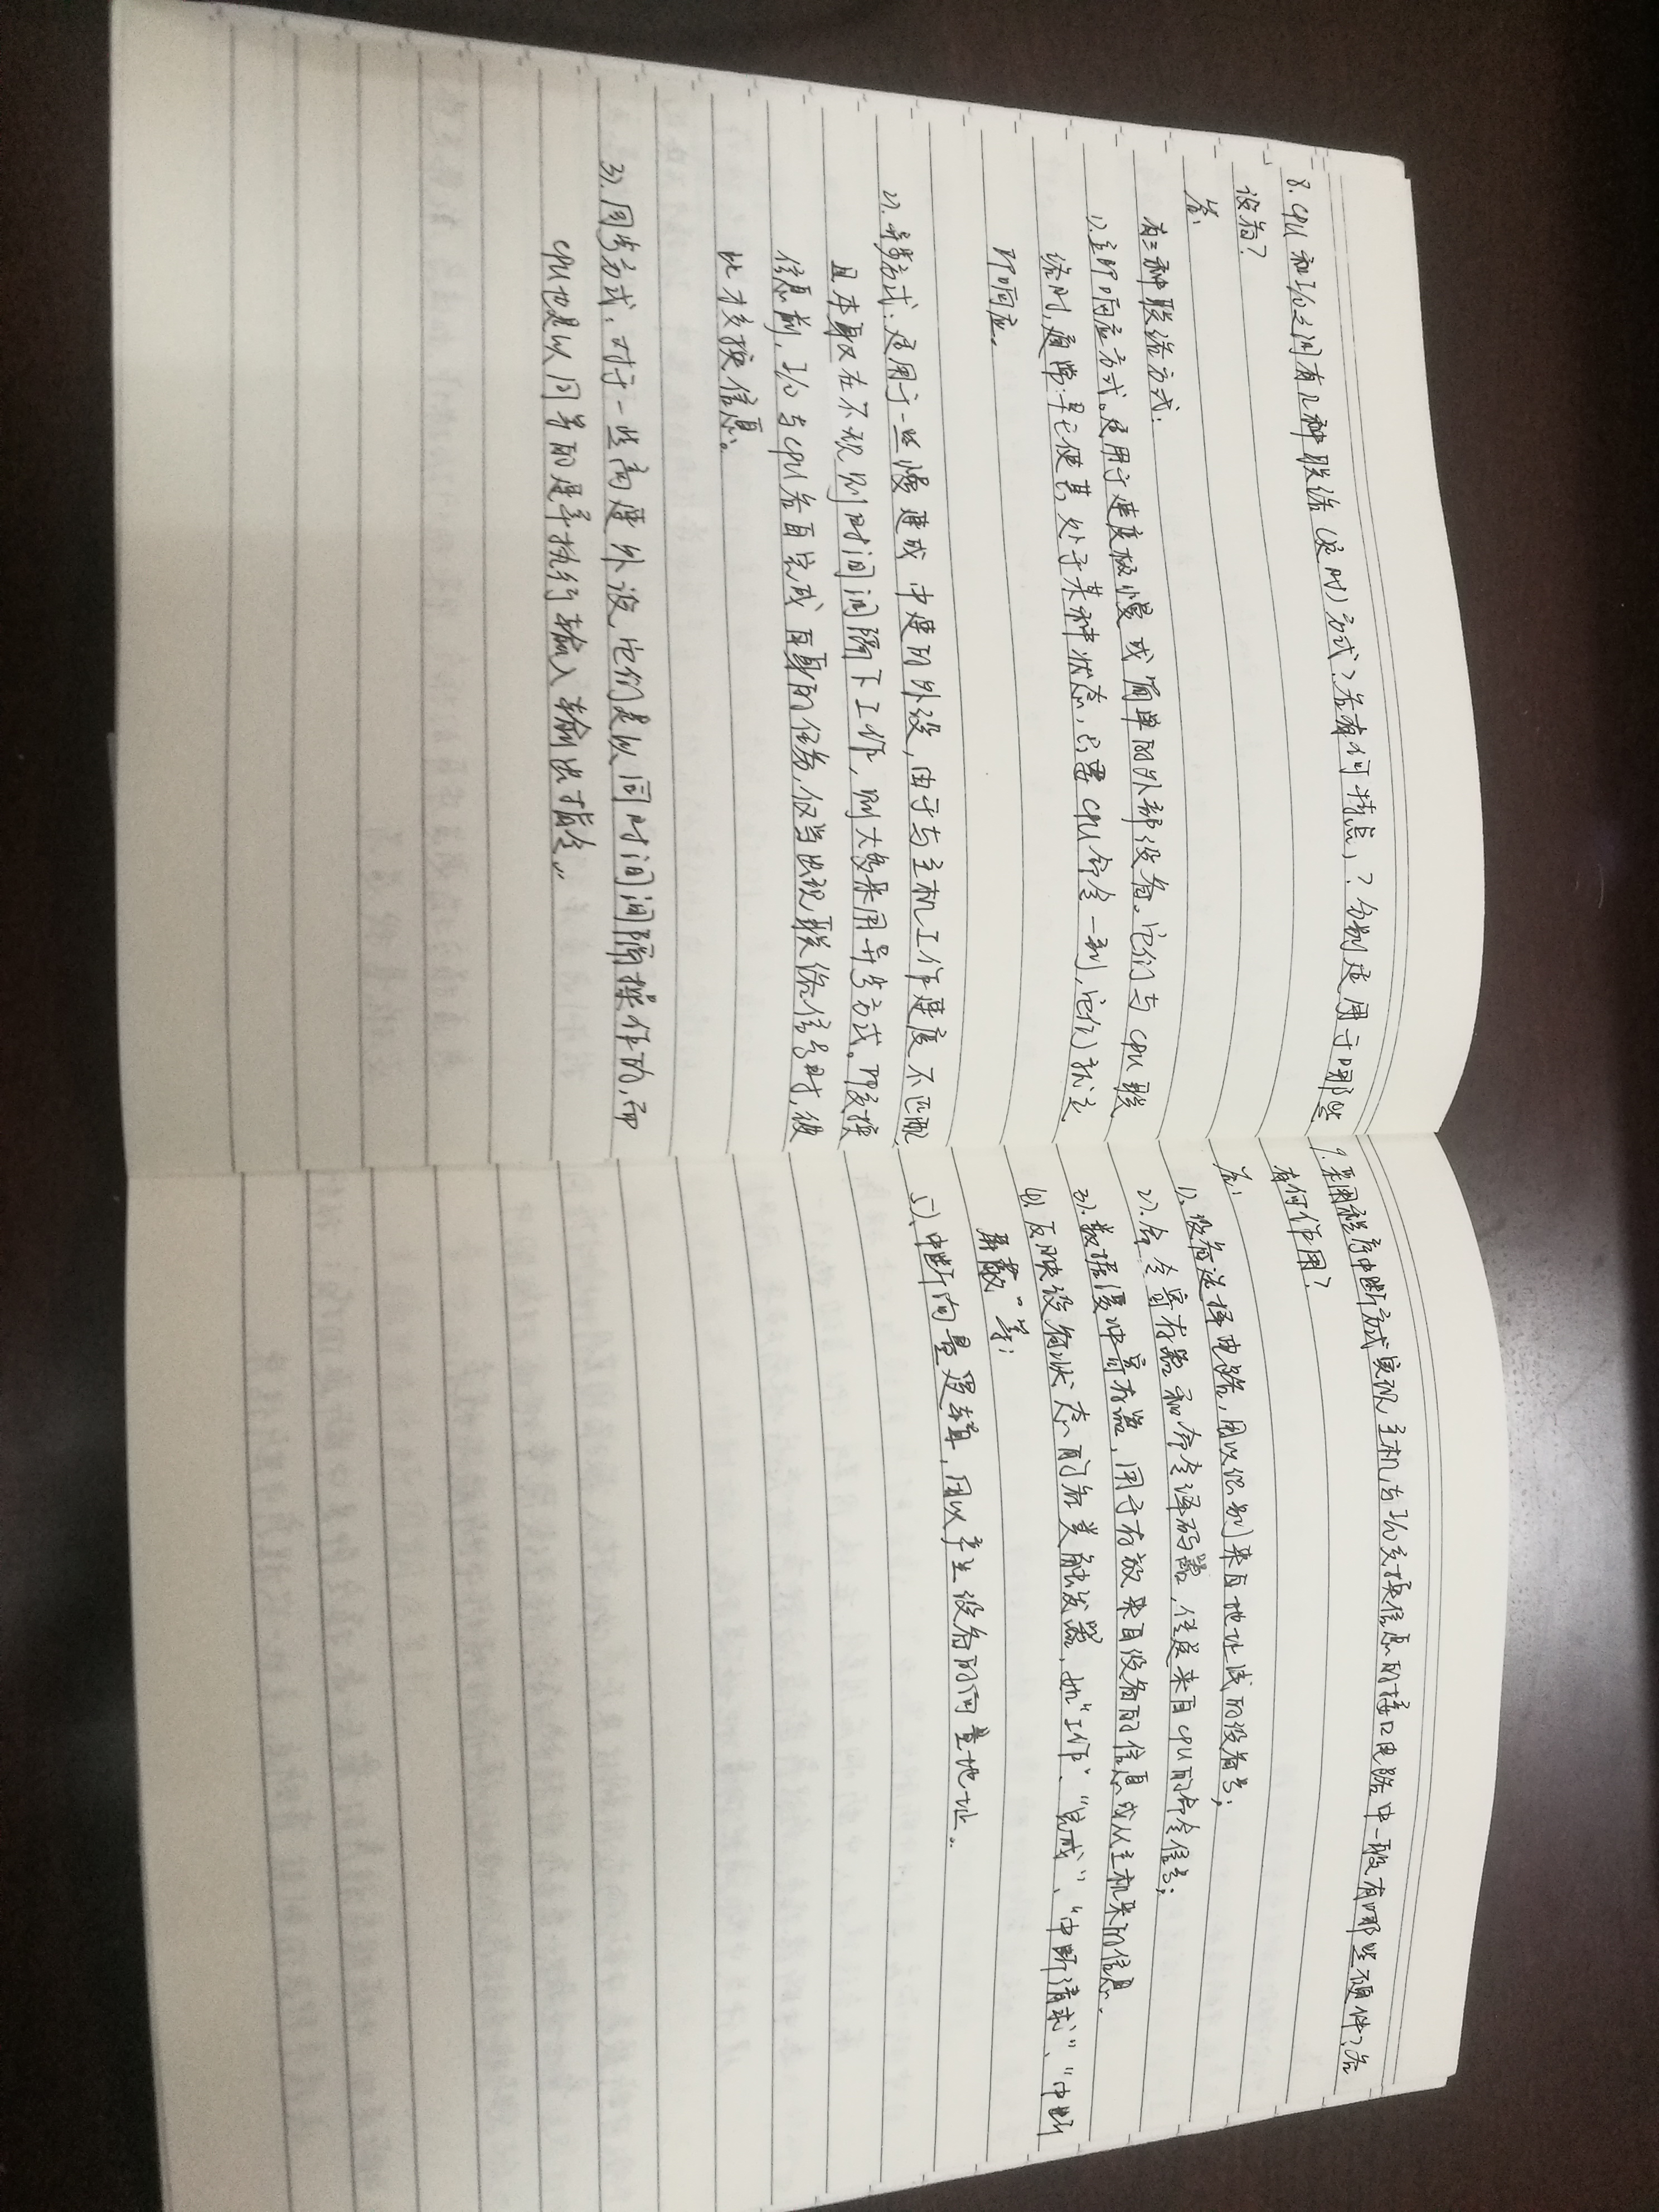 8. CPU和I/O之间有几种联络(定时)方式?各有何特点,?分别适用于哪些
设备?
答:
有三种联络方式:
1). 立即响应方式。适用于速度极慢或简单的外部设备。它们与CPU联
络时,通常早已使其处于某种状态,只要CPU命令一到,它们就立
即响应。
2). 异步方式:适用于一些慢速或中速的外设,由于与主机工作速度不匹配
且本身又在不规则时间间隔下工作,则大多采用异步方式。即交换
信息前,I/O与CPU各自完成自身的任务,仅当出现联络信号时,彼
此才交换信息。
3). 同步方式:对于一些高速外设,它们是以同时间间隔操作的,而
CPU也是以同等的速率执行输入输出指令。
9. 采用程序中断方式实现主机与I/O交换信息的接口电路中一般有哪些硬件?各
有何作用?
答:
1). 设备选择电路,用以识别来自地址线的设备号;
2). 命令寄存器和命令译码器,任意来自CPU的命令信号;
3). 数据缓冲寄存器,用于存放来自设备的信息或从主机来的信息.
4). 反映设备状态的各类触发器,如“工作”、“完成”、“中断请求”、“中断
屏蔽”等;
5). 中断向量逻辑,用以产生设备的向量地址。